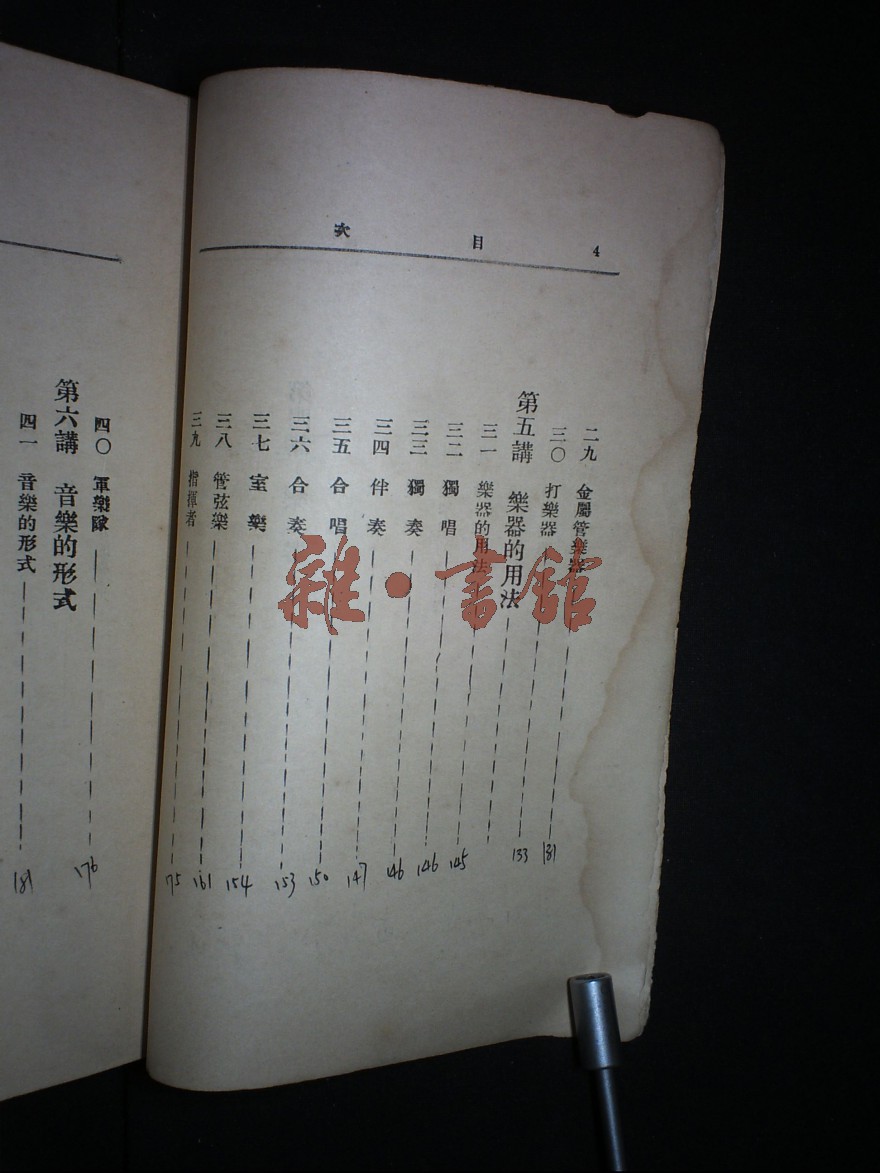 4
目次
二九 金屬管樂器 131
三〇 打樂器 133
第五講 樂器的用法
三一 樂器的用法 145
三二 獨唱 146
三三 獨奏 146
三四 伴奏 147
三五 合唱 150
三六 合奏 153
三七 室樂 154
三八 管弦樂 161
三九 指揮者 175
四〇 軍樂隊 176
第六講 音樂的形式
四一 音樂的形式 181
雜·書館